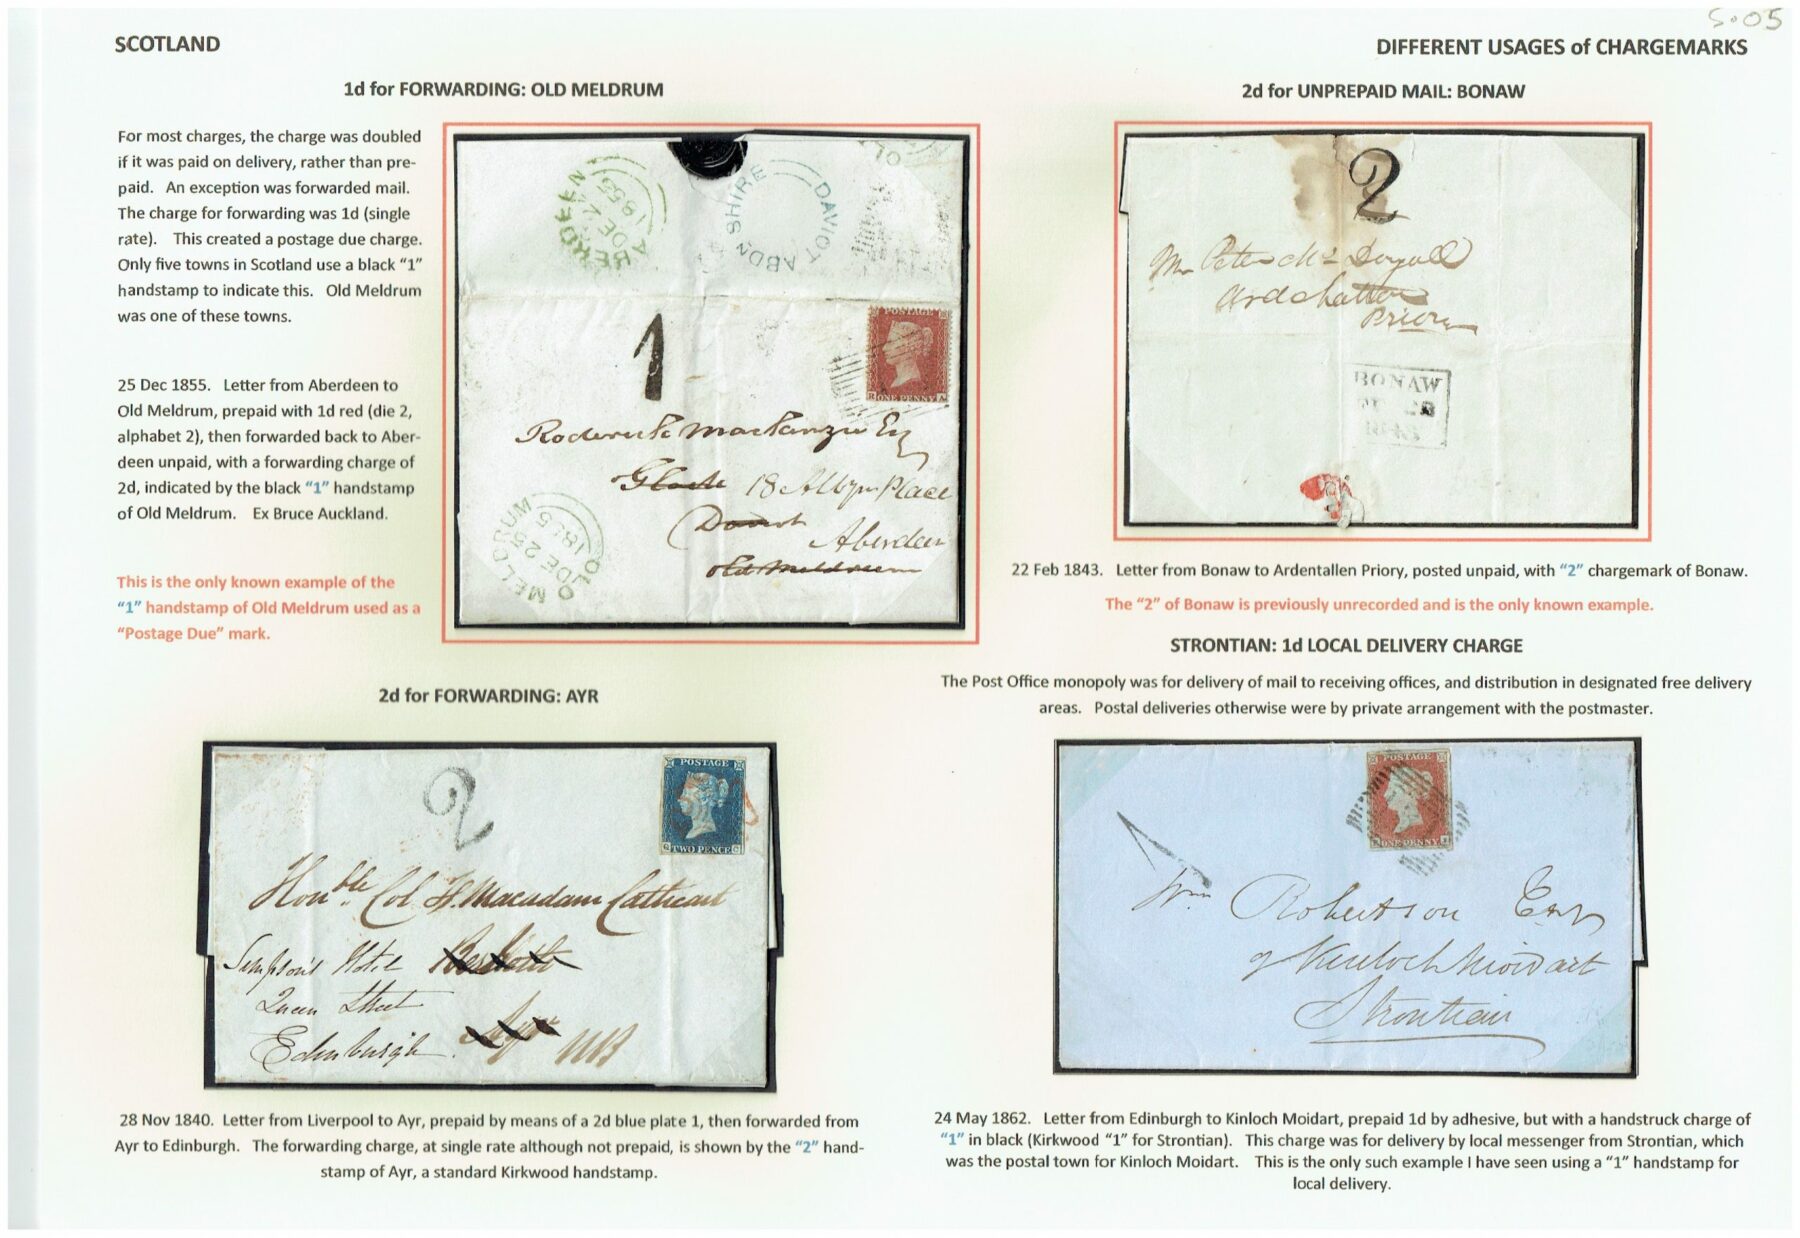 S.05
SCOTLAND
DIFFERENT USAGES of CHARGEMARKS
1d for FORWARDING: OLD MELDRUM
For most charges, the charge was doubled
if it was paid on delivery, rather than pre-
paid. An exception was forwarded mail.
The charge for forwarding was 1d (single
rate). This created a postage due charge.
Only five towns in Scotland use a black “1”
handstamp to indicate this. Old Meldrum
was one of these towns.
25 Dec 1855. Letter from Aberdeen to
Old Meldrum, prepaid with 1d red (die 2,
alphabet 2), then forwarded back to Aber-
deen unpaid, with a forwarding charge of
2d, indicated by the black “1” handstamp
of Old Meldrum. Ex Bruce Auckland.
This is the only known example of the
“1” handstamp of Old Meldrum used as a
“Postage Due” mark.
ABERDEEN
DE
1855
DAVIOT
ABDNSHIRE
OL
1
POSTAGE
ONE PENNY
Roderick Mackenzie Esq
18 Albyn Place
Aberdeen
Old Meldrum
OLD MELDRUM
DE 25
1855
2d for UNPREPAID MAIL: BONAW
2
Mr Peter McDougall
Ardchattan
Priory
BONAW
1843
22 Feb 1843. Letter from Bonaw to Ardentallen Priory, posted unpaid, with “2” chargemark of Bonaw.
The “2” of Bonaw is previously unrecorded and is the only known example.
2d for FORWARDING: AYR
2
POSTAGE
TWO PENCE
Honble Col H. Macadam Cathcart
Simpson's Hotel
Queen Street
Edinburgh Ayr NB
28 Nov 1840. Letter from Liverpool to Ayr, prepaid by means of a 2d blue plate 1, then forwarded from
Ayr to Edinburgh. The forwarding charge, at single rate although not prepaid, is shown by the “2” hand-
stamp of Ayr, a standard Kirkwood handstamp.
STRONTIAN: 1d LOCAL DELIVERY CHARGE
The Post Office monopoly was for delivery of mail to receiving offices, and distribution in designated free delivery
areas. Postal deliveries otherwise were by private arrangement with the postmaster.
1
POSTAGE
ONE PENNY
Wm Robertson Esqr
of Kinloch Moidart
Strontian
24 May 1862. Letter from Edinburgh to Kinloch Moidart, prepaid 1d by adhesive, but with a handstruck charge of
“1” in black (Kirkwood “1” for Strontian). This charge was for delivery by local messenger from Strontian, which
was the postal town for Kinloch Moidart. This is the only such example I have seen using a “1” handstamp for
local delivery.